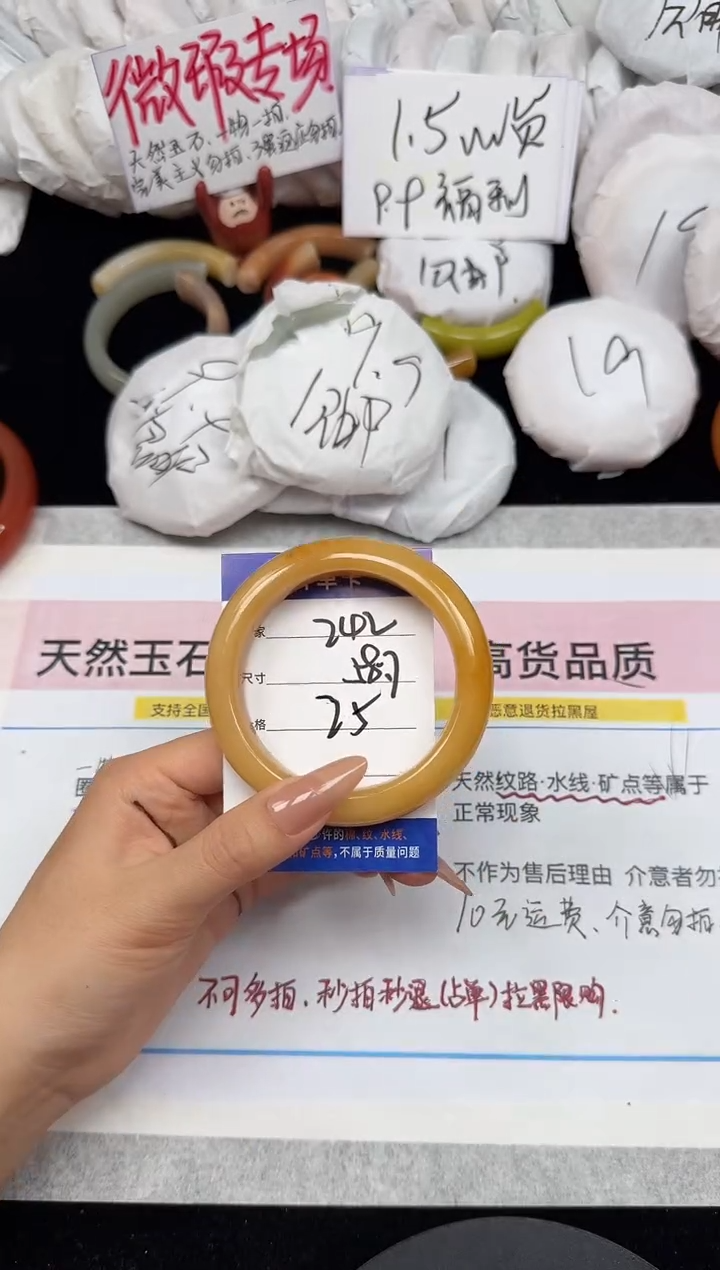 微瑕专场
天然玉石、一物一拍、
完美主义勿拍、
1.5w货
P.P福利
19
17.5
天然玉石
高货品质
支持全国
恶意退货拉黑屋
家 242
尺寸 58.7
格 25
天然纹路·水线·矿点等属于
正常现象
许的棉、纹、水线、
矿点等,不属于质量问题
不作为售后理由 介意者勿
10元运费、介意勿拍
不可多拍、秒拍秒退(占单)拉黑限购.